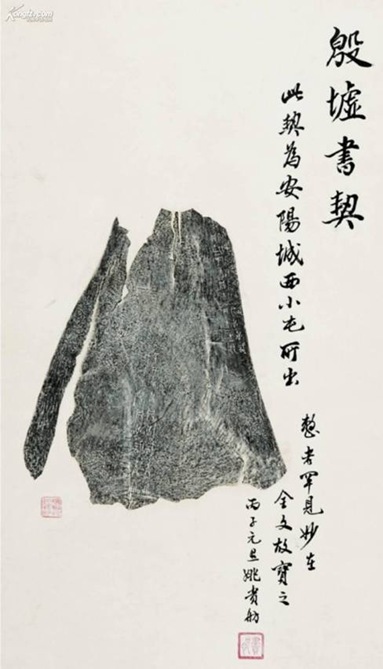 殷墟書契
此契為安陽城西小屯所出
整者罕見妙在
全文故寶之
丙子元旦姚貴舫